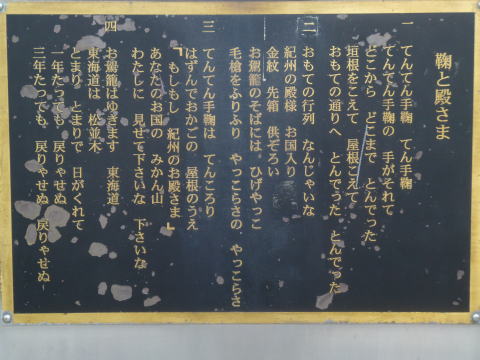 鞠と殿さま
一
てんてん手鞠 てん手鞠
てんてん手鞠の 手がそれて
どこから どこまで とんでった
垣根をこえて 屋根こえて
おもての通りへ とんでった とんでった
二
おもての行列 なんじゃいな
紀州の殿様 お国入り
金紋 先箱 供ぞろい
お駕籠のそばには ひげやっこ
毛槍をふりふり やっこらさの やっこらさ
三
てんてん手鞠は てんころり
はずんでおかごの 屋根のうえ
「もしもし 紀州のお殿さま」
あなたのお国の みかん山
わたしに 見せて下さいな 下さいな
四
お駕籠はゆきます 東海道
東海道は 松並木
とまり、とまりで 日がくれて
一年たっても、戻りゃせぬ
三年たっても、戻りゃせぬ 戻りゃせぬ